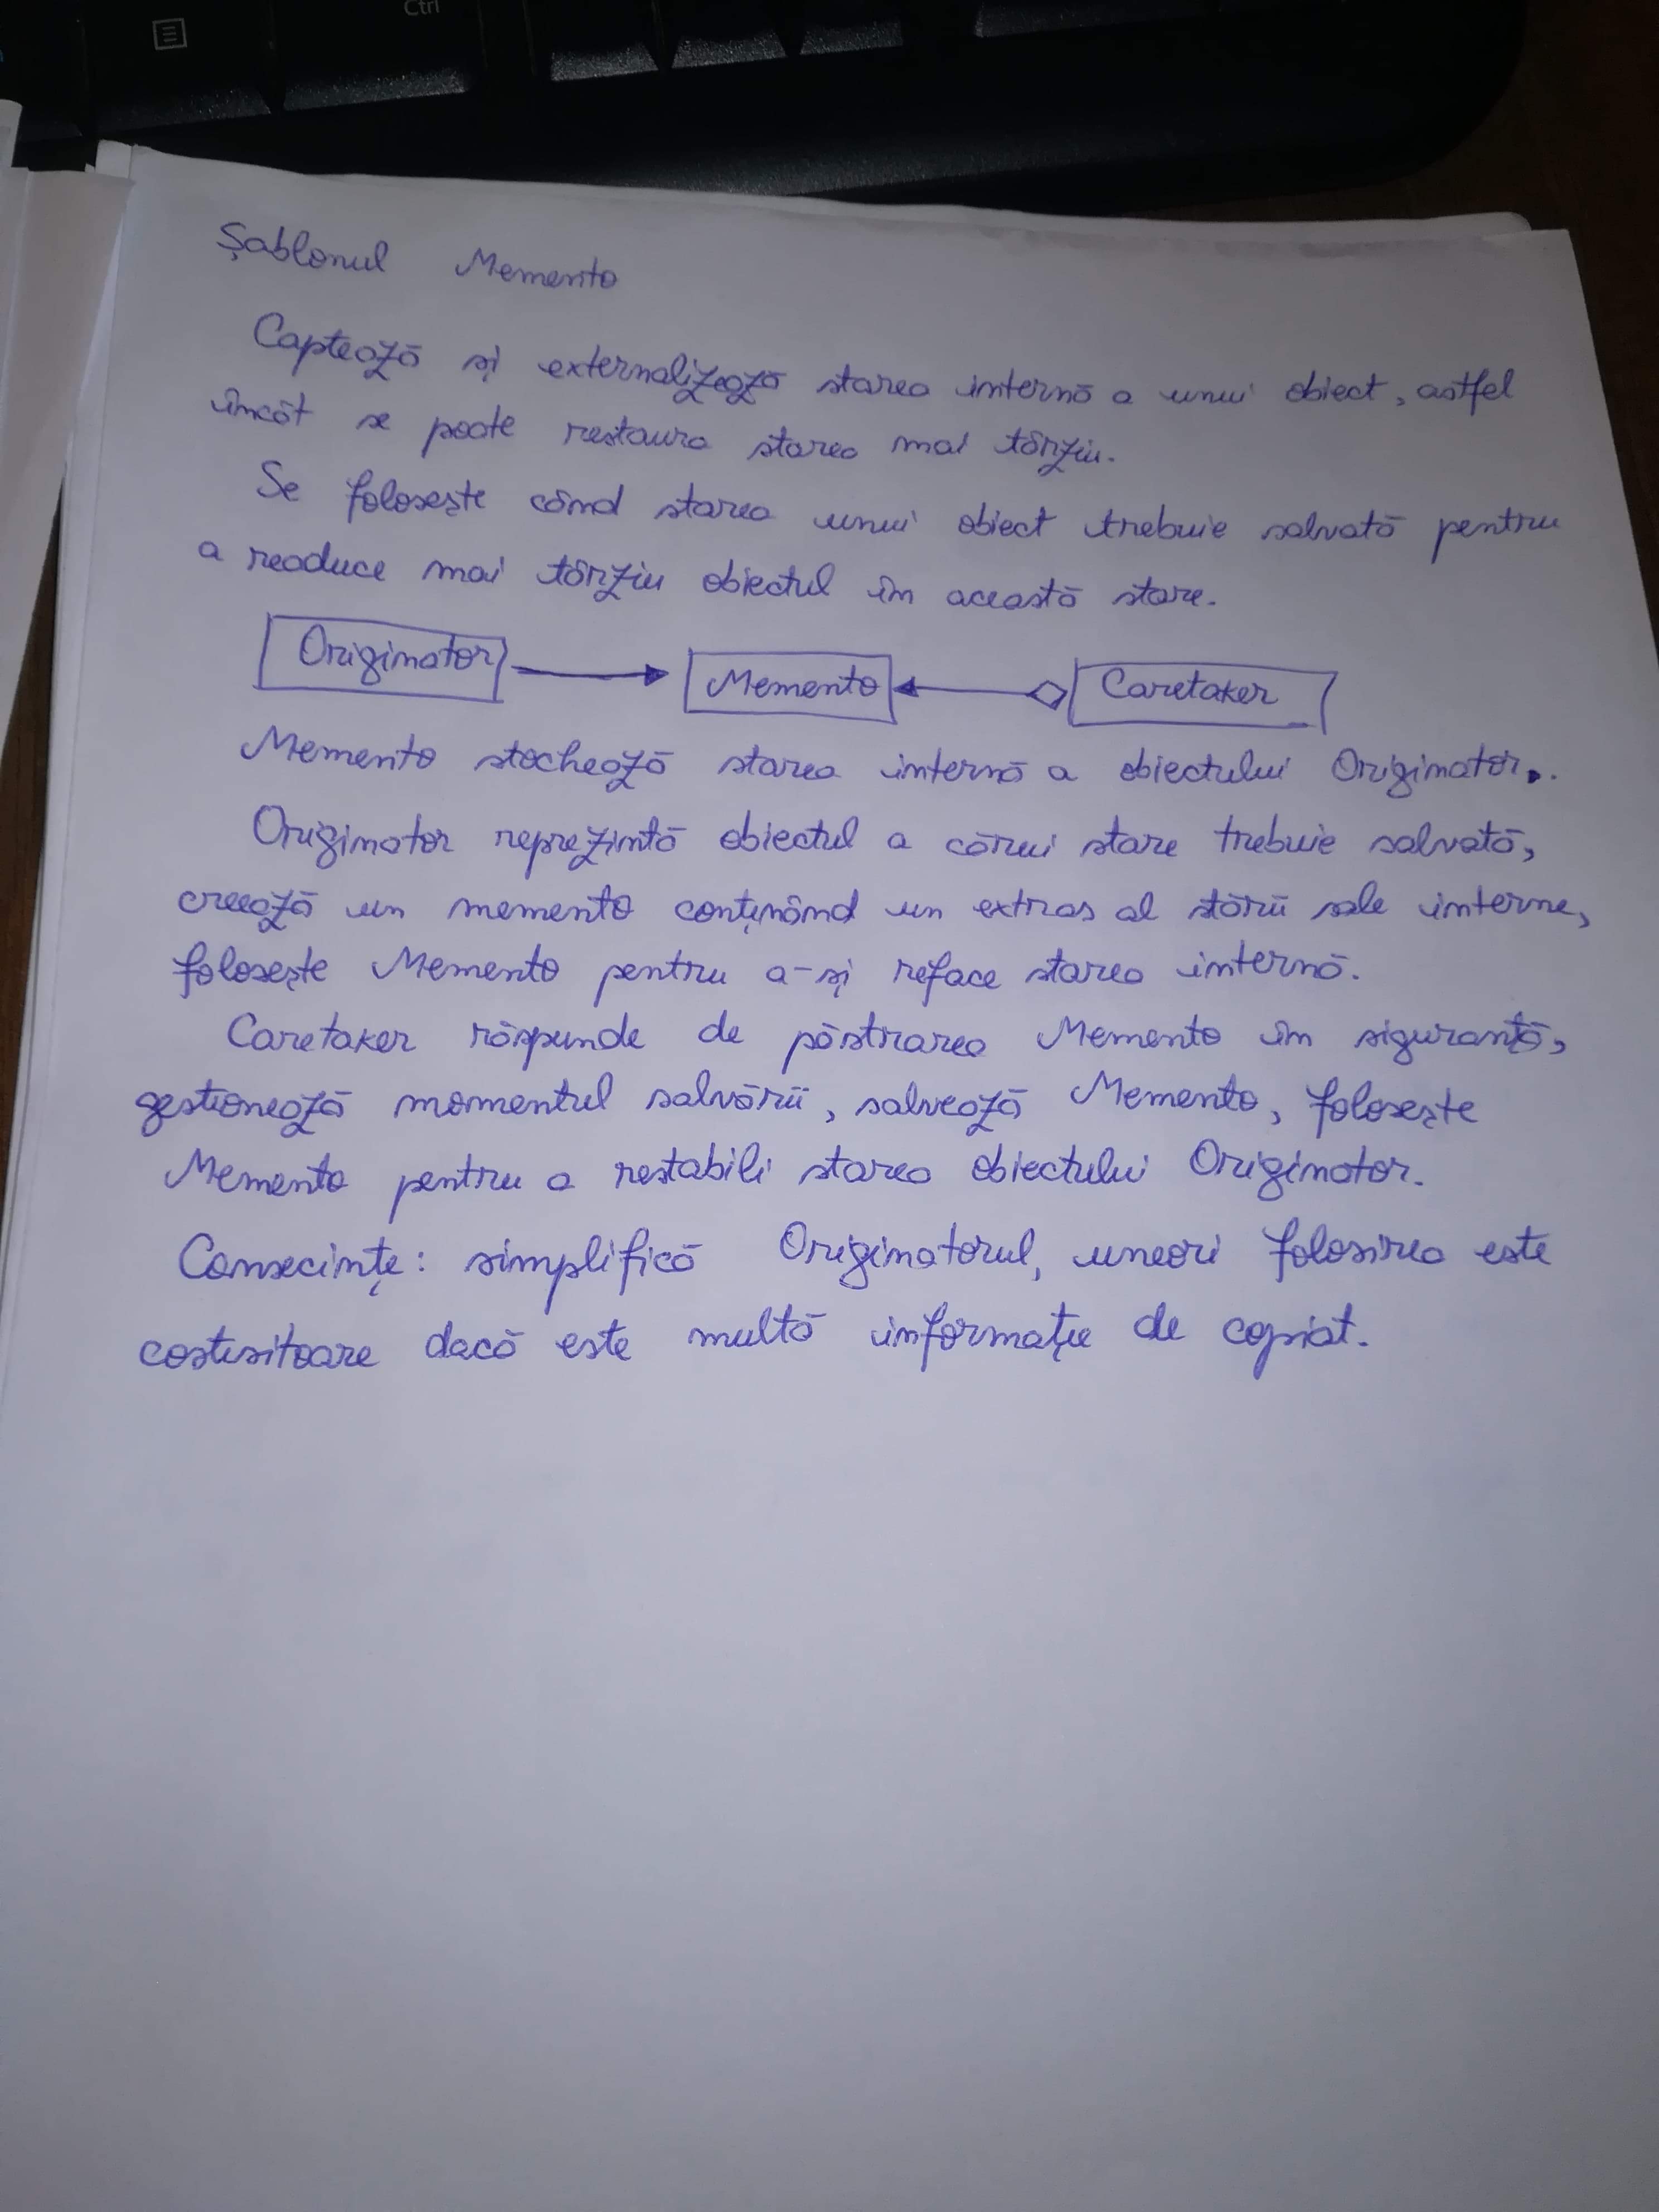 Ctrl
Șablonul Memento
Captează și externalizează starea internă a unui obiect, astfel
încât se poate restaura starea mai târziu.
Se folosește când starea unui obiect trebuie salvată pentru
a readuce mai târziu obiectul în această stare.
Originator Memento Caretaker
Memento stochează starea internă a obiectului Originator.
Originator reprezintă obiectul a cărui stare trebuie salvată,
creează un memento conținând un extras al stării sale interne,
folosește Memento pentru a-și reface starea internă.
Caretaker răspunde de păstrarea Memento în siguranță,
gestionează momentul salvării, salvează Memento, folosește
Memento pentru a restabili starea obiectului Originator.
Consecințe: simplifică Originatorul, uneori folosirea este
costisitoare dacă este multă informație de copiat.